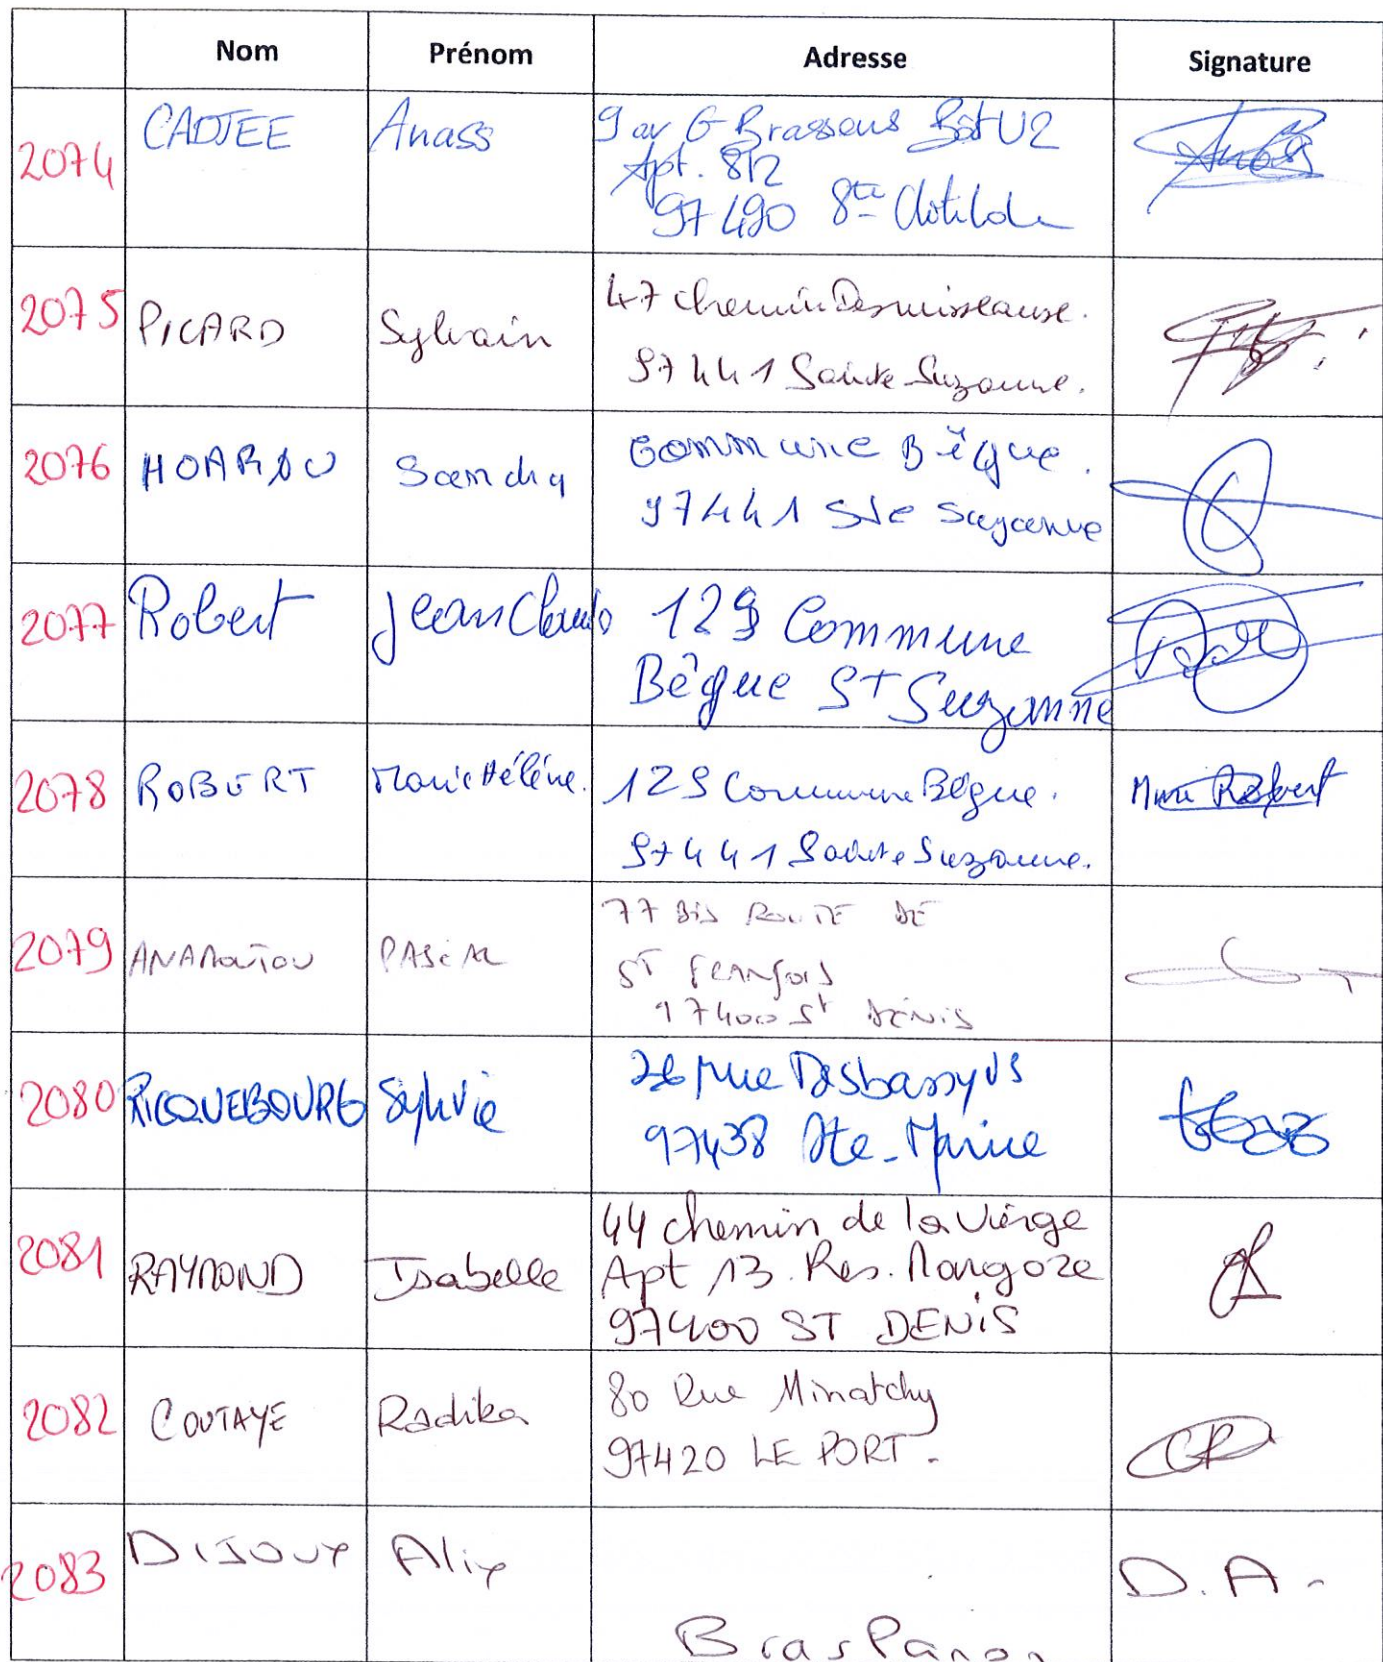 Nom Prénom Adresse Signature
2074 CADJEE Anass 9 av G Brassens Bât U2
Apt. 812
97490 Ste Clotilde
2075 PICARD Sylvain 47 chemin Desruisseaux.
97441 Sainte Suzanne.
2076 HOARAU Sandra Commune Bègue.
97441 Ste Suzanne
2077 Robert Jean Claude 129 Commune
Bègue St Suzanne
2078 ROBERT Marie Hélène. 129 Commune Bègue. Mme Robert
97441 Sainte Suzanne.
2079 PASCAL 77 BIS ROUTE DE
ST FRANçois
97400 St DENIS
2080 RICQUEBOURG Sylvie 26 rue Desbassyns
97438 Ste-Marie
2081 RAYMOND Isabelle 44 chemin de la Vierge
Apt 13. Res. Mangoze
97400 ST DENIS
2082 COUTAYE Radika 80 Rue Minatchy
97420 LE PORT.
2083 DIJOUX Alix D.A-
Bras Panon